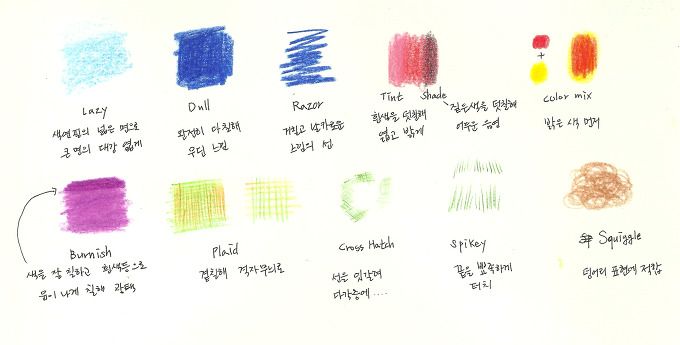 Lazy
색연필의 넓은 면으로
큰 면의 대강 엷게
Dull
완전히 다 칠해
무딘 느낌
Razor
거칠고 날카로운
느낌의 선
Tint
흰색을 덧칠해
엷고 밝게
Shade
짙은색을 덧칠해
어두운 음영
+
color mix
밝은 색 먼저
Burnish
색을 잘 칠하고 흰색등으로
윤이 나게 칠해 광택
Plaid
겹칠해 격자무늬로
Cross Hatch
선을 엇갈려
다각층에 ....
Spikey
끝은 뾰족하게
터치
Squiggle
덩어리 표현에 적합